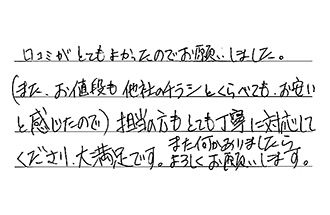 口コミがとてもよかったのでお願いしました。
(また、お値段も他社のチラシとくらべても、お安い
と感じたので)担当の方もとても丁寧に対応して
くださり、大満足です。また何かありましたら
よろしくお願いします。